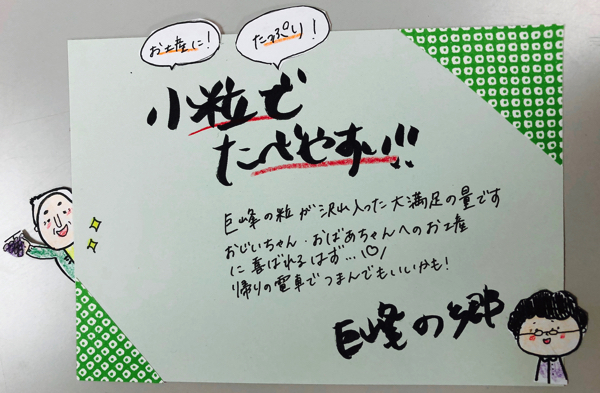 お土産に!
たっぷり!
小粒で
たべやすい!!
巨峰の粒が沢山入った大満足の量です
おじいちゃん・おばあちゃんへのお土産
に喜ばれるはず…\♡/
帰りの電車でつまんでもいいかも!
巨峰の郷